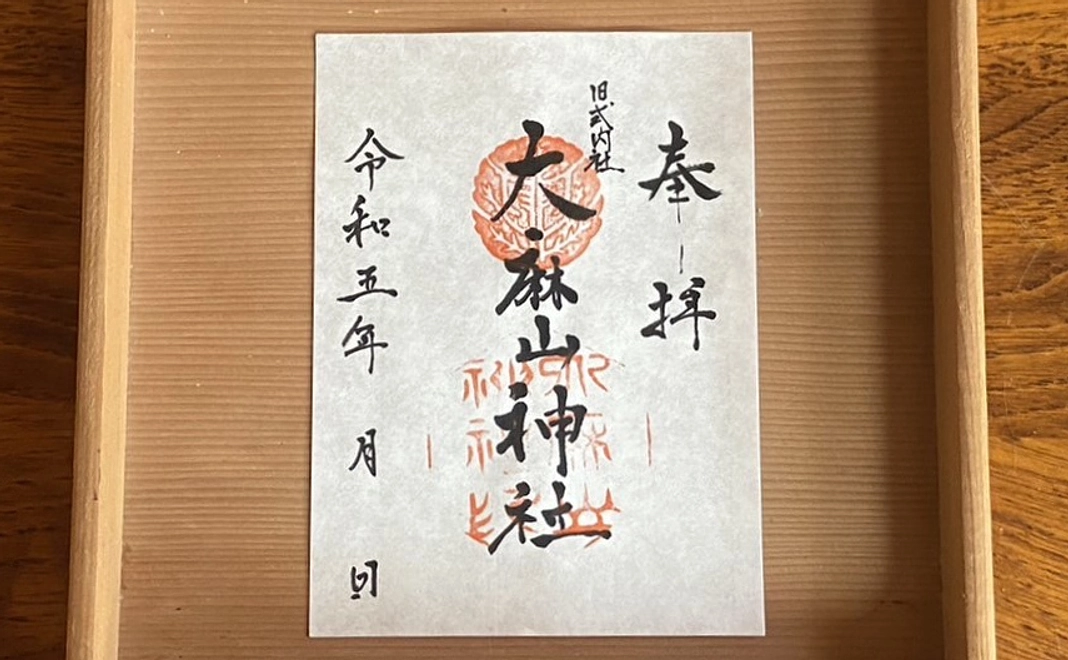 奉拝
旧式内社
大麻山神社
令和五年 月 日